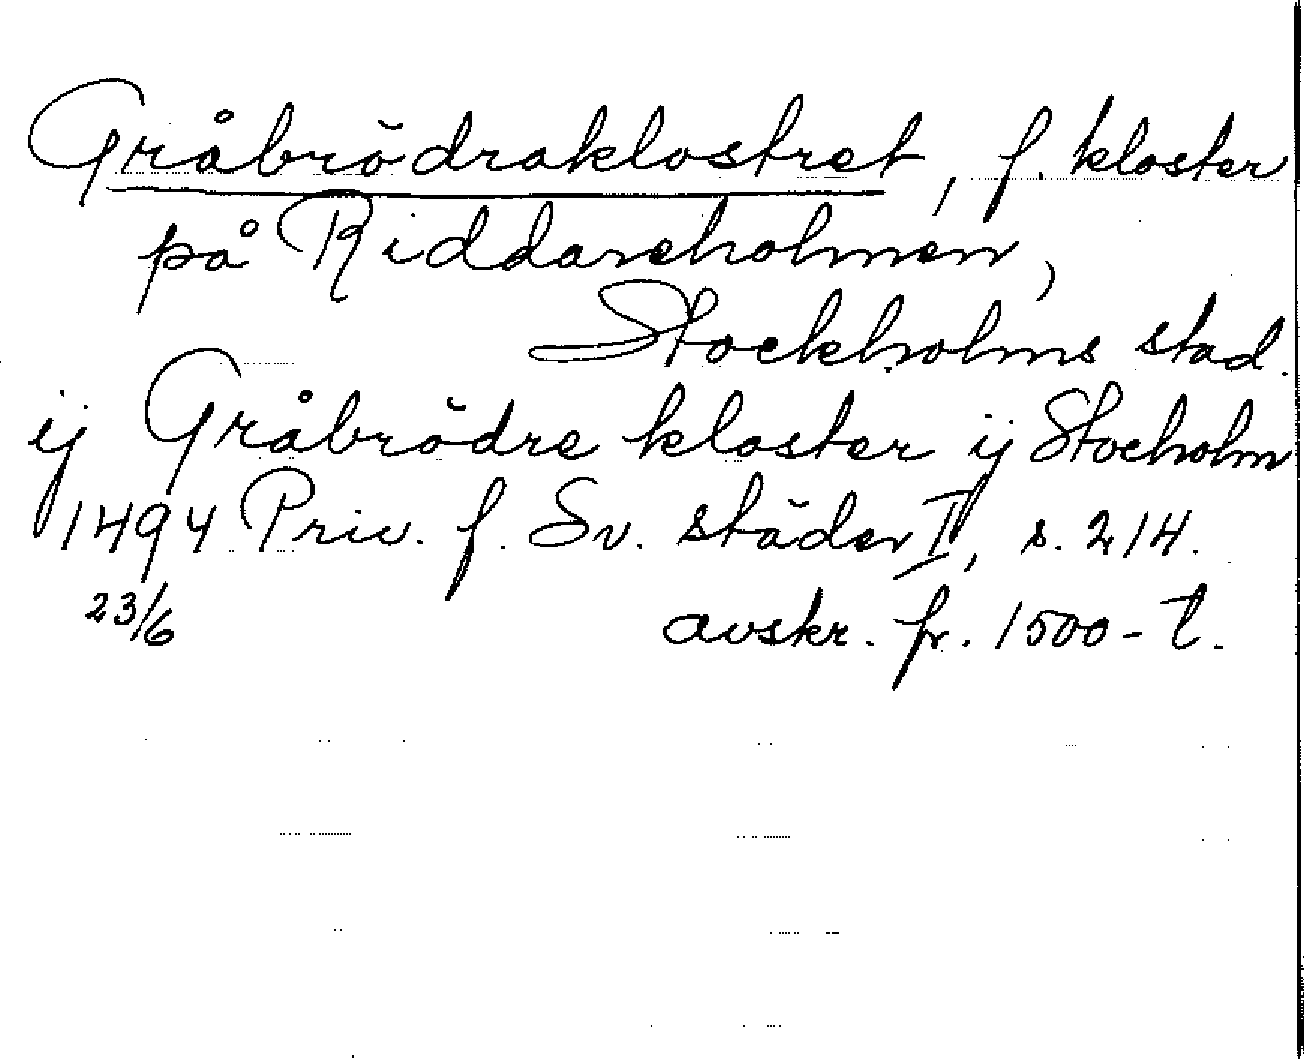 Gråbrödraklostret, f. kloster
på Riddareholmen,
Stockholms stad.
ij Gråbrödre kloster ij Stocholm
1494 Priv. f. Sv. städer I, s. 214.
23/6 avskr. fr. 1500-t.